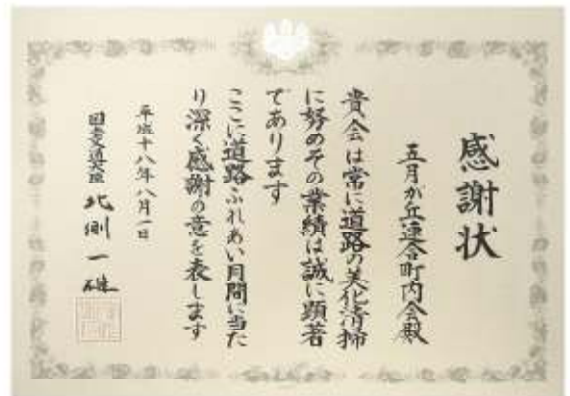 感謝状
五月が丘連合町内会殿
貴会は常に道路の美化清掃
に努めその業績は誠に顕著
であります
ここに道路ふれあい月間に当た
り深く感謝の意を表します
平成十八年八月一日
国土交通大臣 北側一雄